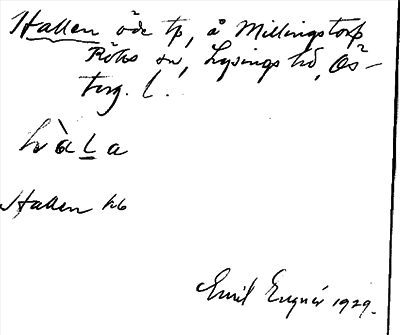 Hallen öde tp, å Millingstorp
Röks sn, Lysings hd, Ös-
terg. l.
hàla
Hallen hb
Emil 1929.